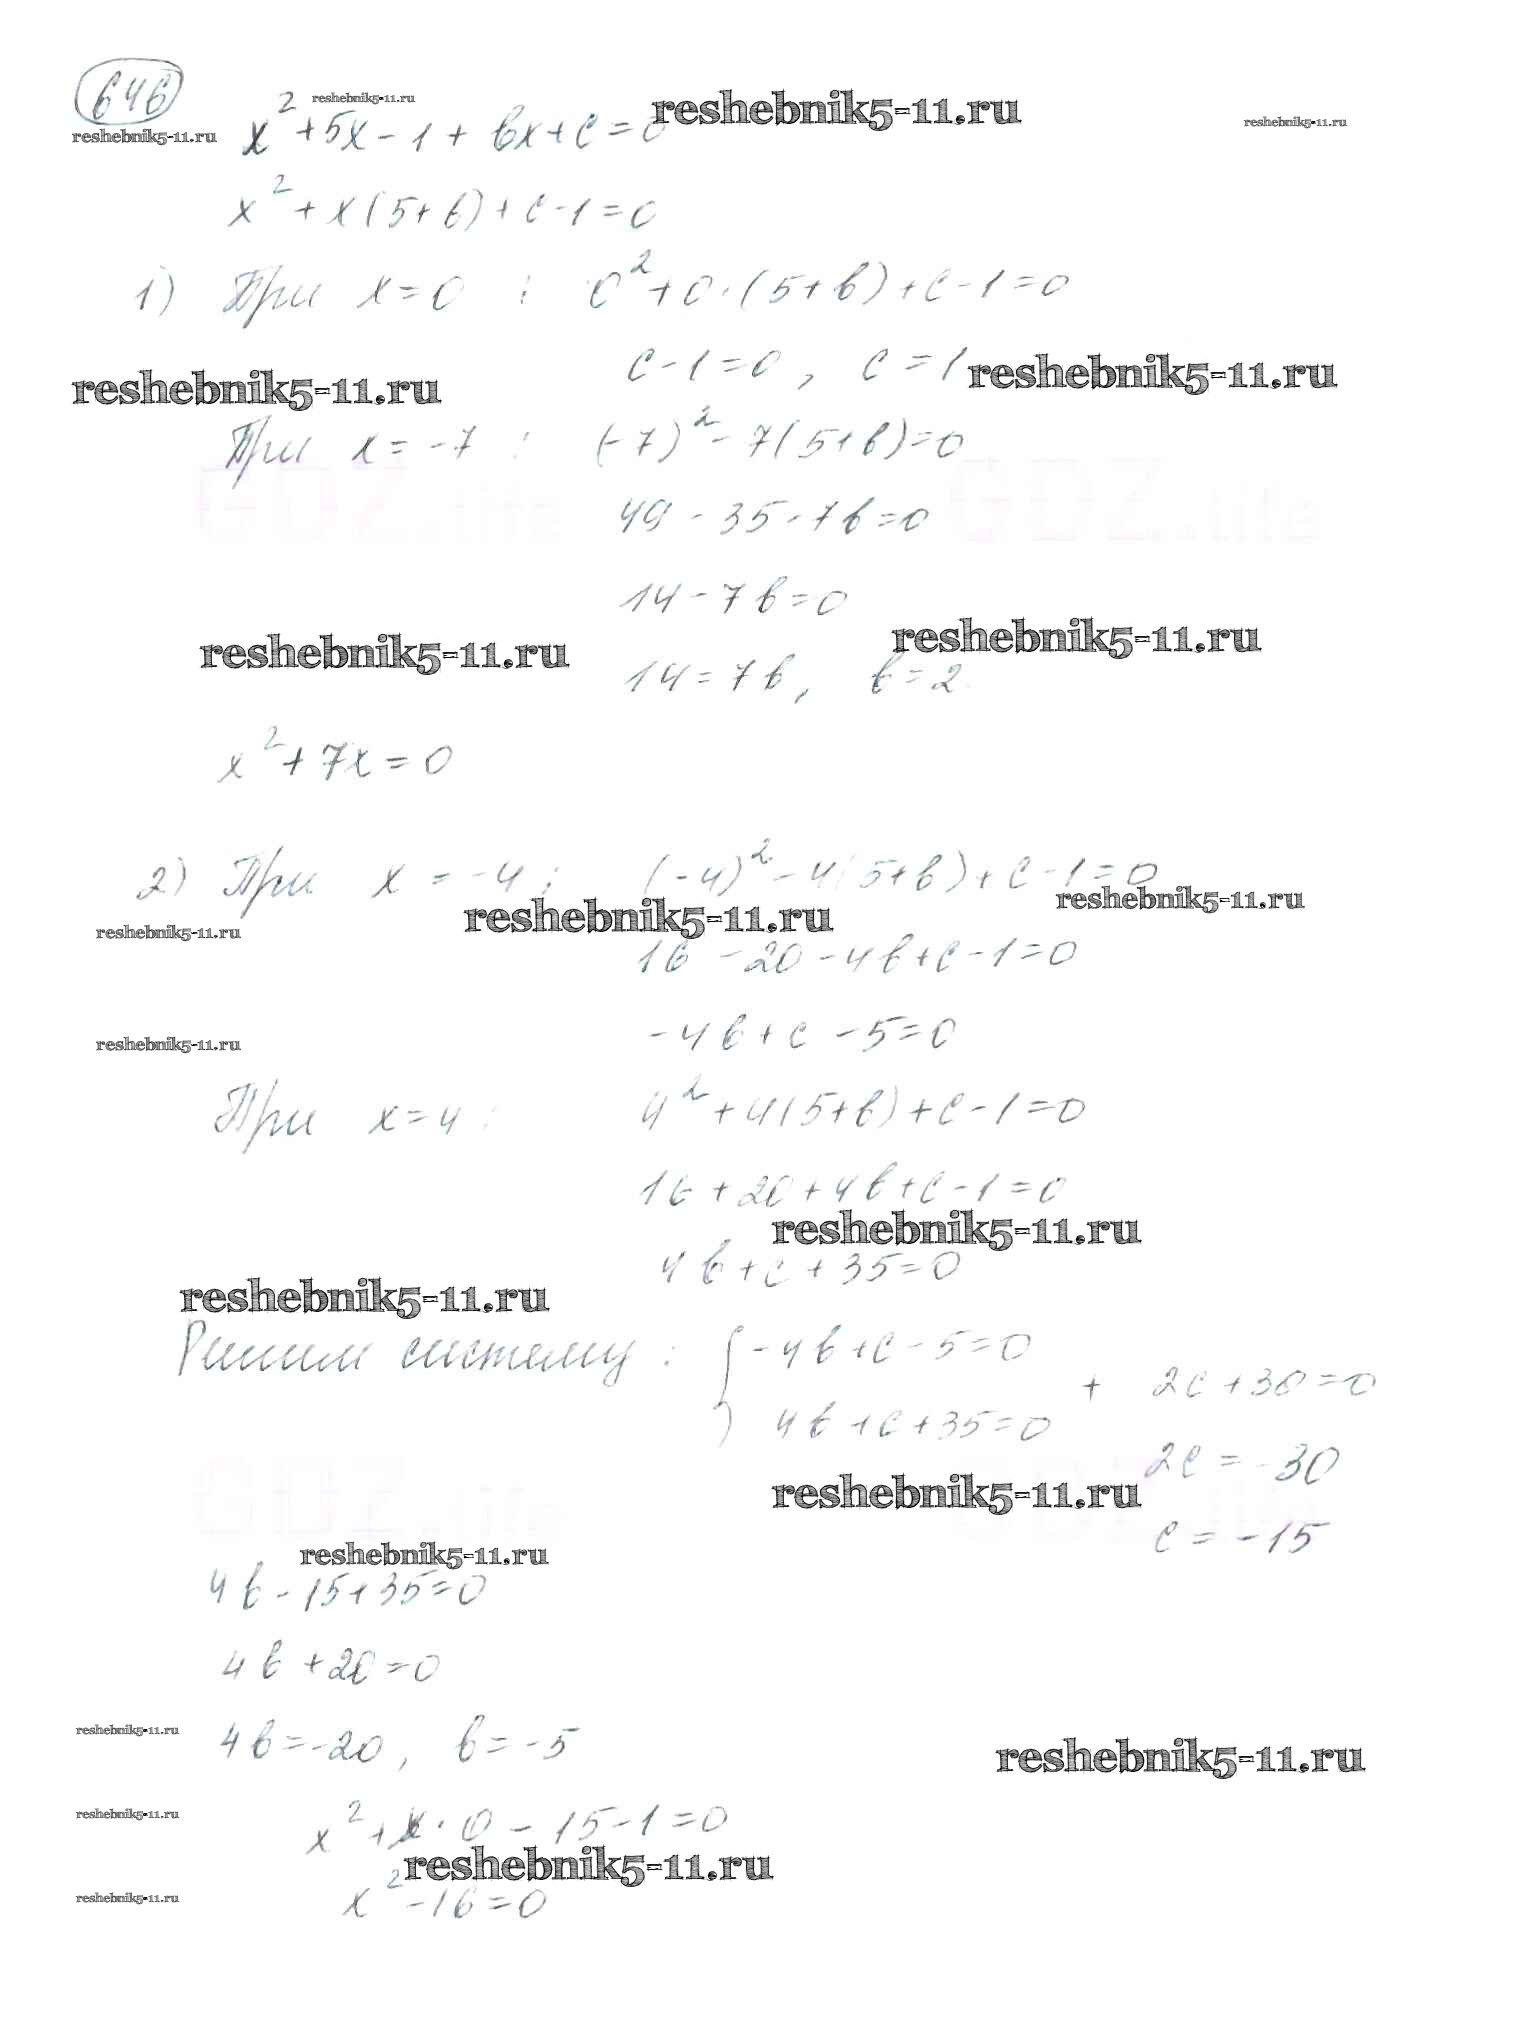 646
reshebnik5-11.ru reshebnik5-11.ru reshebnik5-11.ru reshebnik5-11.ru
x² + 5x - 1 + bx + c = 0
x² + x(5 + b) + c - 1 = 0
1) При x = 0 : 0² + 0 · (5 + b) + c - 1 = 0
c - 1 = 0 , c = 1
reshebnik5-11.ru reshebnik5-11.ru
При x = -7 : (-7)² - 7(5 + b) = 0
GDZ.life GDZ.life
49 - 35 - 7b = 0
14 - 7b = 0
reshebnik5-11.ru reshebnik5-11.ru
14 = 7b , b = 2
x² + 7x = 0
2) При x = -4 : (-4)² - 4(5 + b) + c - 1 = 0
reshebnik5-11.ru reshebnik5-11.ru reshebnik5-11.ru
16 - 20 - 4b + c - 1 = 0
-4b + c - 5 = 0
reshebnik5-11.ru
При x = 4 : 4² + 4(5 + b) + c - 1 = 0
16 + 20 + 4b + c - 1 = 0
reshebnik5-11.ru
4b + c + 35 = 0
reshebnik5-11.ru
Решим систему : { -4b + c - 5 = 0
4b + c + 35 = 0
+ 2c + 30 = 0
2c = -30
reshebnik5-11.ru
GDZ.life GDZ.life
c = -15
reshebnik5-11.ru
4b - 15 + 35 = 0
4b + 20 = 0
4b = -20 , b = -5
reshebnik5-11.ru reshebnik5-11.ru
x² + x · 0 - 15 - 1 = 0
reshebnik5-11.ru reshebnik5-11.ru
x² - 16 = 0
reshebnik5-11.ru